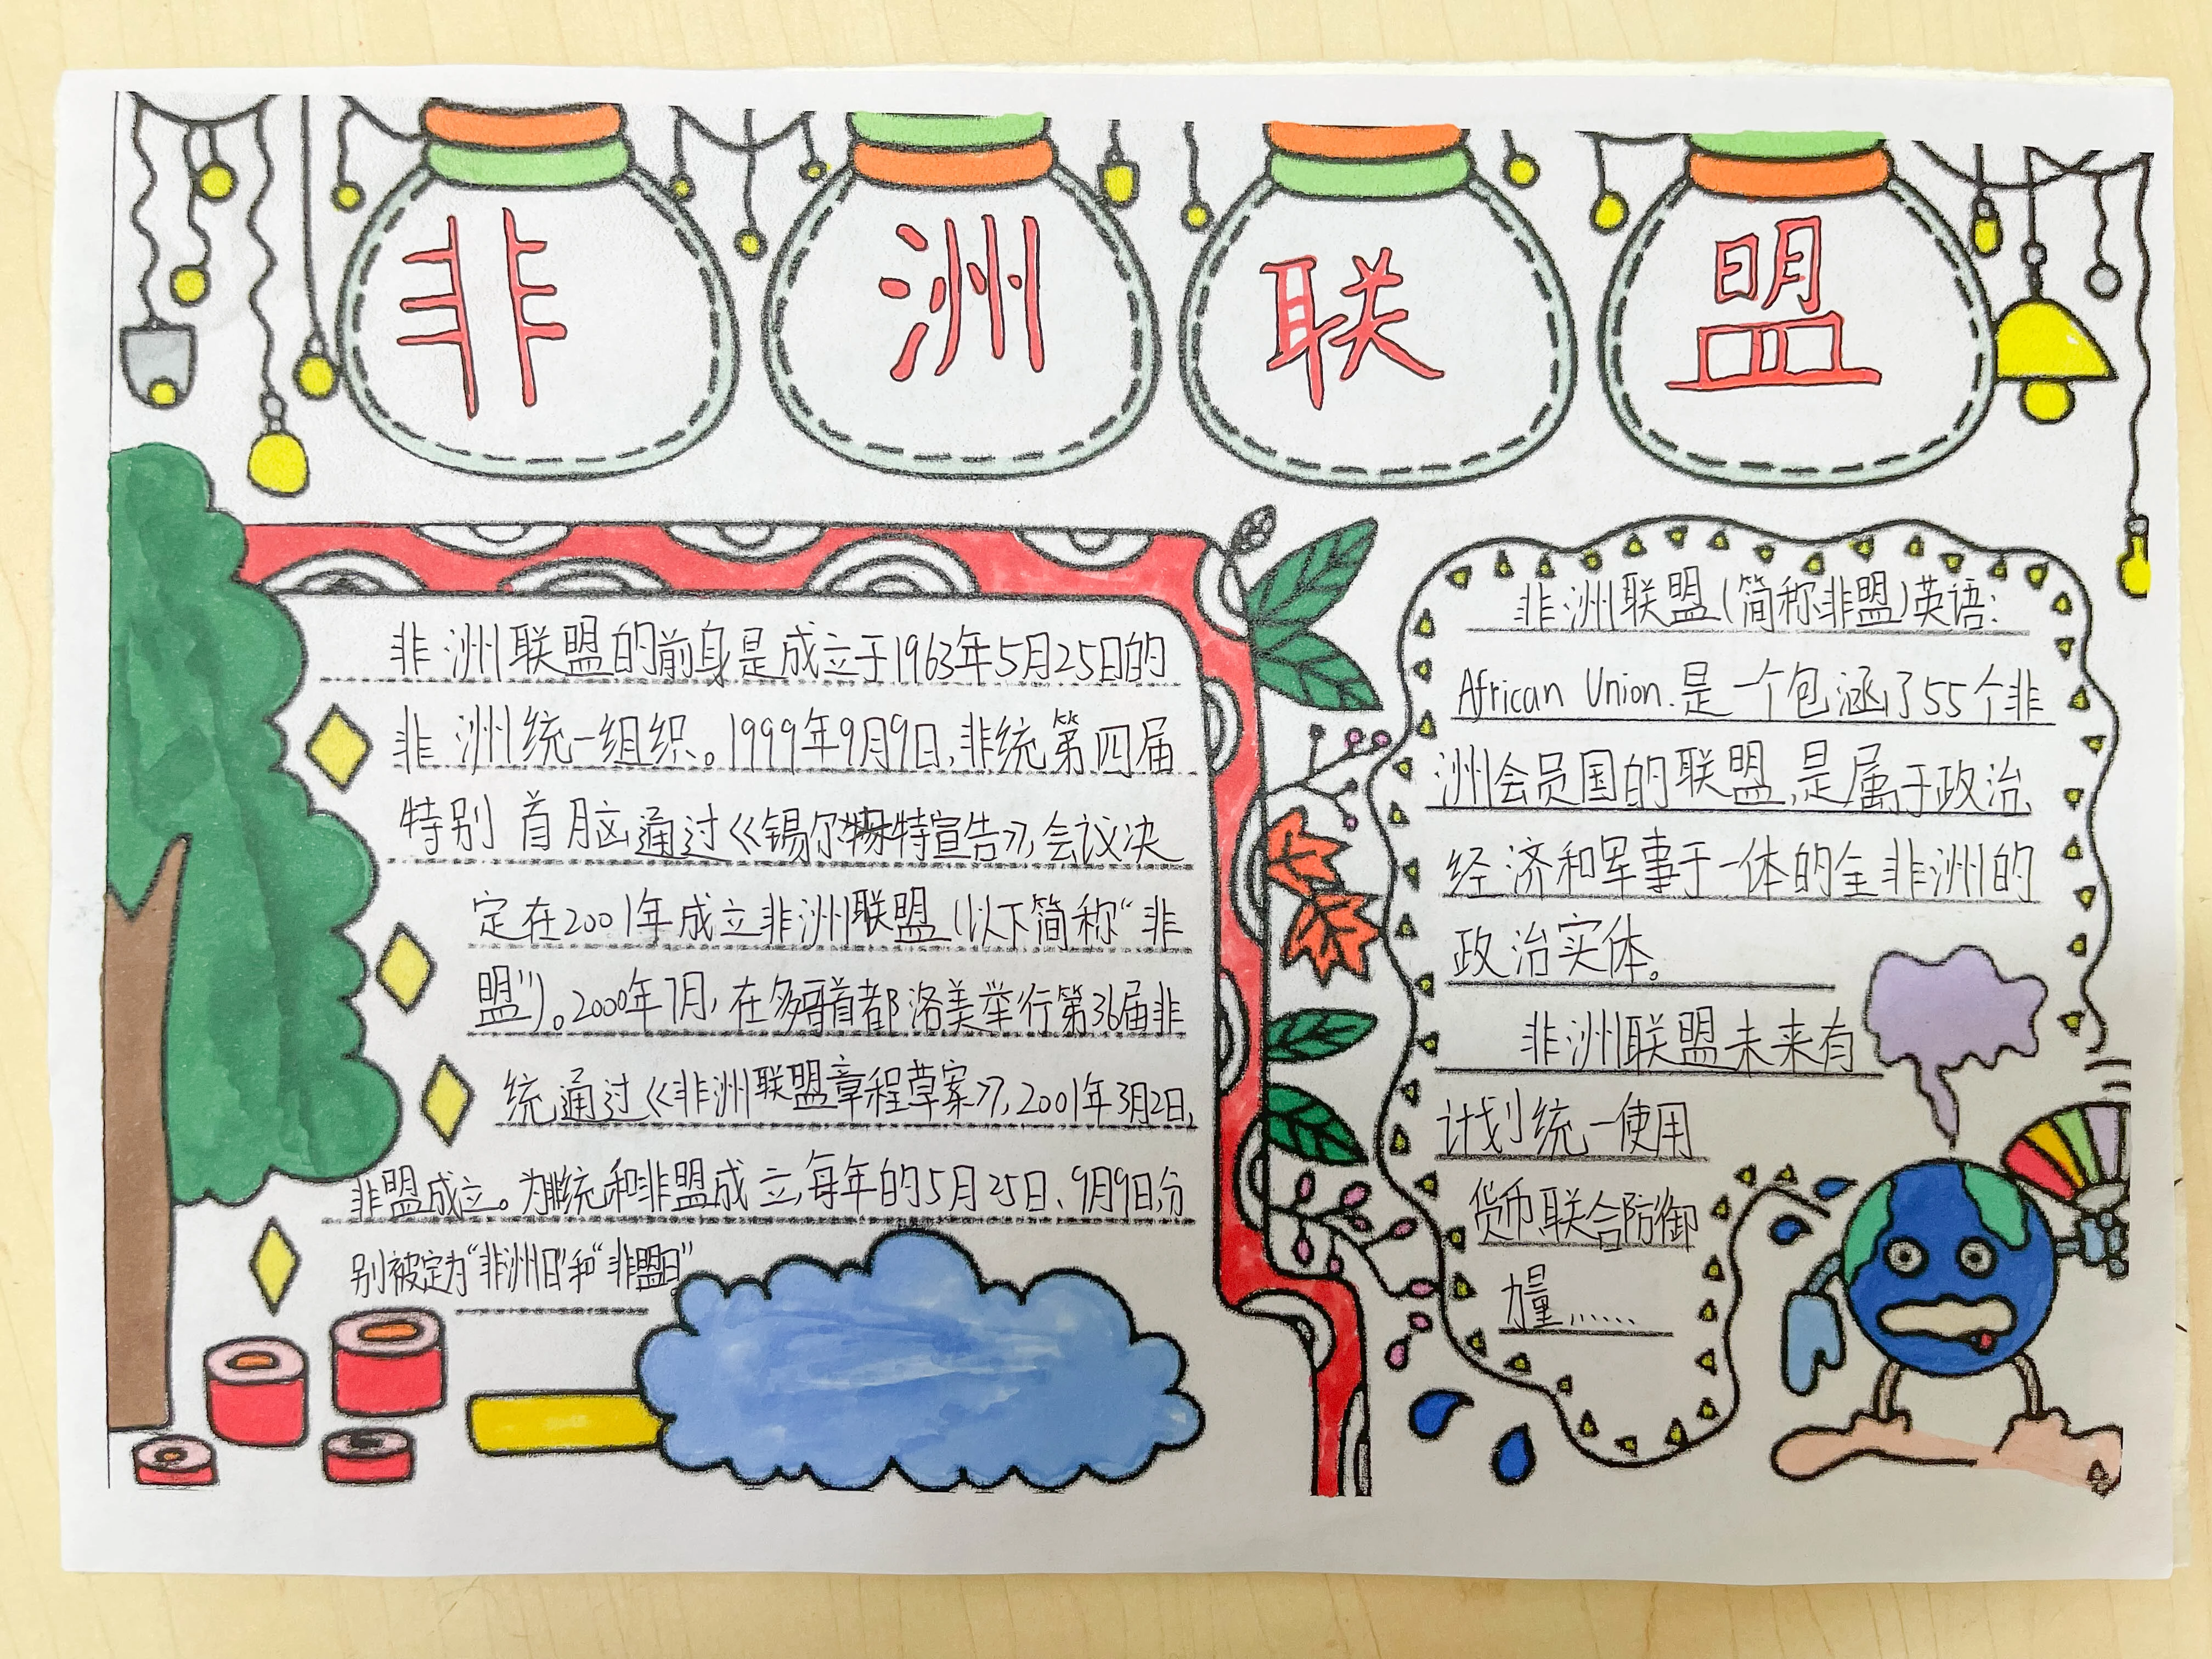 非洲联盟
非洲联盟的前身是成立于1963年5月25日的
非洲统一组织。1999年9月9日,非统第四届
特别首脑通过《锡尔特宣告》,会议决
定在2001年成立非洲联盟(以下简称“非
盟”)。2000年7月,在多哥首都洛美举行第36届非
统通过《非洲联盟章程草案》,2001年3月2日,
非盟成立。为非统和非盟成立,每年的5月25日、9月9日,分
别被定为“非洲日”和“非盟日”
非洲联盟(简称非盟)英语:
African Union.是一个包涵了55个非
洲会员国的联盟,是属于政治
经济和军事于一体的全非洲的
政治实体。
非洲联盟未来有
计划统一使用
货币联合防御
力量......